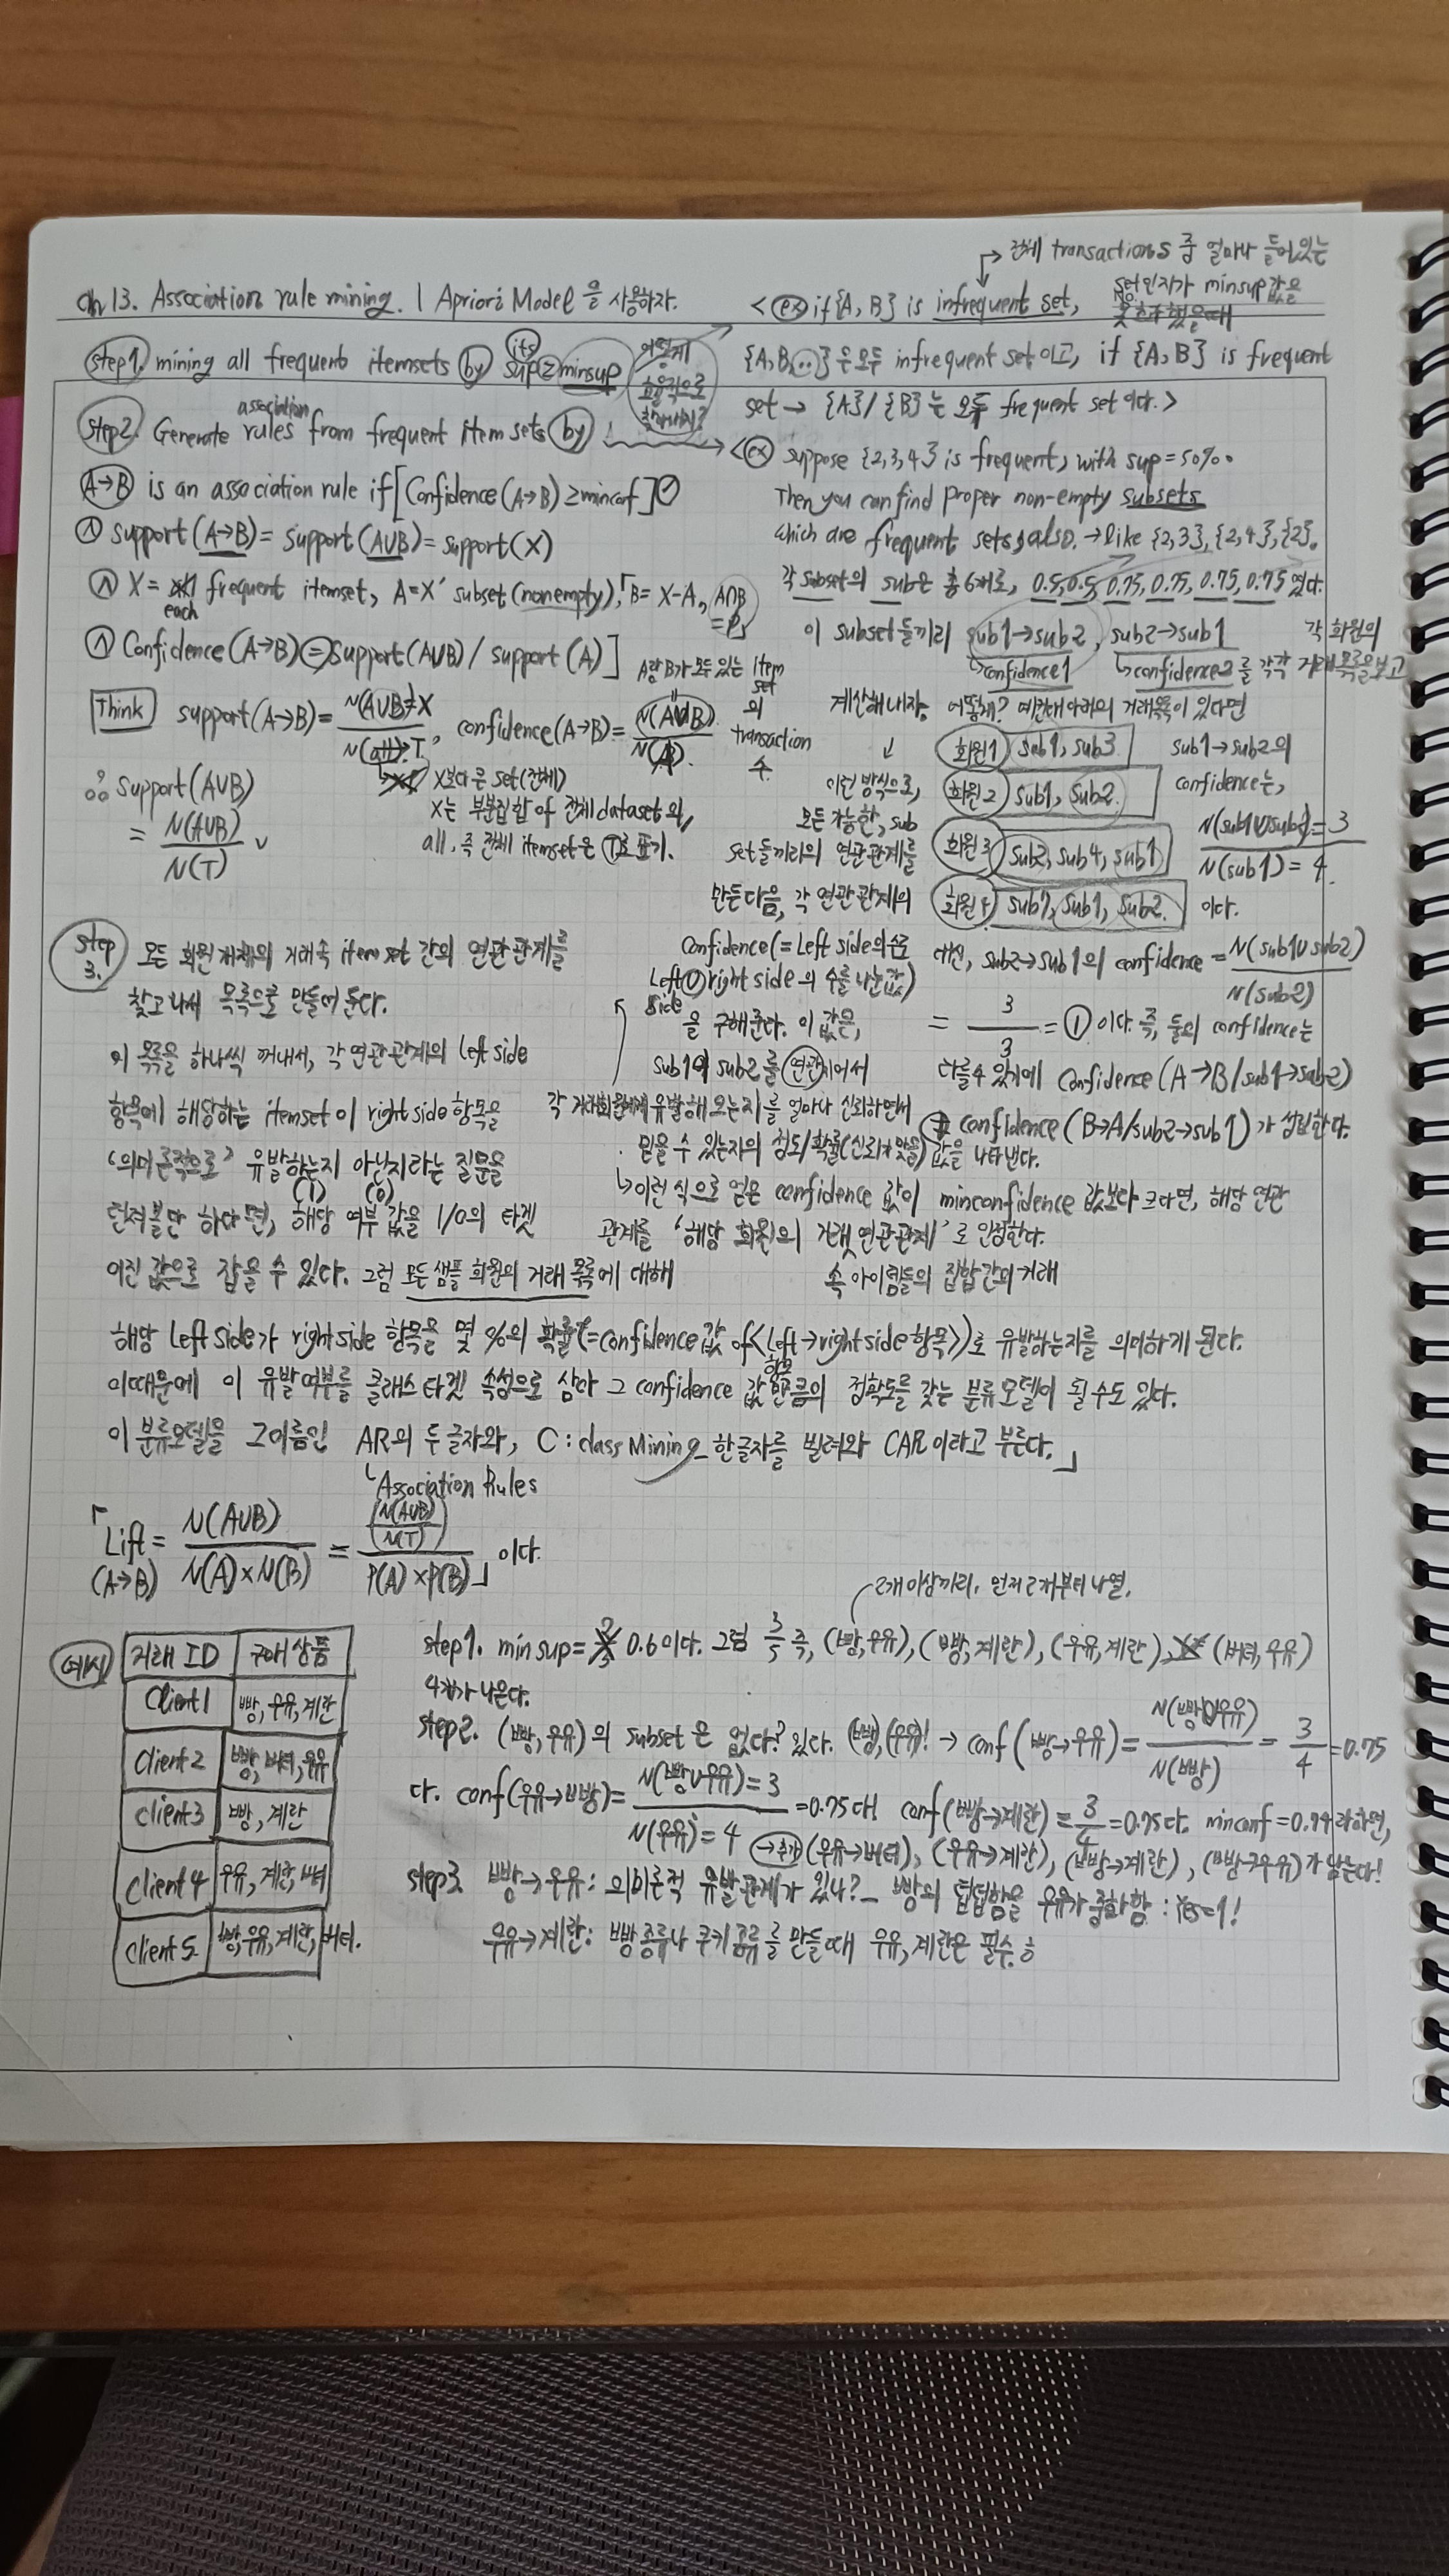 Ch 13. Association rule mining. | Apriori Model을 사용하자.
step1. mining all frequent itemsets by its sup≥minsup
어떻게 효율적으로 찾아내지?
step2. Generate association rules from frequent item sets by
A→B is an association rule if [Confidence(A→B) ≥ minconf]
∧ support(A→B) = support(A∪B) = support(X)
∧ X = each frequent itemset, A=X' subset(nonempty), 「B = X-A, A∩B
∧ Confidence(A→B) = support(A∪B) / support(A)]
Think support(A→B) = N(A∪B)=X / N(all)=T, confidence(A→B) = N(A∪B) / N(A)
A랑 B가 모두 있는 item set의 transaction 수
X보다 큰 set(전체)
X는 부분집합 of 전체 dataset의,
all, 즉 전체 itemset은 T로 표기.
∴ support(A∪B)
= N(A∪B) / N(T)
→ 전체 transactions 중 얼마나 들어있는
set인지가 minsup값을
<ex if {A, B} is infrequent set,
{A, B, ..}은 모두 infrequent set이고, if {A, B} is frequent
set → {A} / {B}는 모두 frequent set이다.>
<ex suppose {2,3,4} is frequent, with sup=50%.
Then you can find proper non-empty subsets
which are frequent sets, also. → like {2,3}, {2,4}, {2}.
각 subset의 sub은 총 6개로, 0.5, 0.5, 0.75, 0.75, 0.75, 0.75 였다.
이 subset들끼리 sub1→sub2, sub2→sub1 각 회원의
confidence1 confidence2를 각각 거래목록을보고
계산해내자. 어떻게? 예컨대 아래의 거래목록이 있다면
회원1 sub1, sub3
회원2 sub1, sub2
회원3 sub2, sub4, sub1
회원4 sub7, sub1, sub2
sub1→sub2의
confidence는,
N(sub1∪sub2)=3 / N(sub1)=4
이다.
이런 방식으로,
모든 가능한, sub
set들끼리의 연관관계를
만든다음, 각 연관 관계의
Confidence(=Left side의 수로
Left∪right side의 수를 나눈값)
을 구해준다. 이 값은,
sub1이 sub2를 연관지어서
각 거래회원에게 유발해 오는지를 얼마나 신뢰하면서
믿을 수 있는지의 정도/확률 값을 나타낸다.
대신, sub2→sub1의 confidence = N(sub1∪sub2) / N(sub2)
= 3 / 3 = 1 이다. 즉, 둘의 confidence는
다를 수 있기에 Confidence(A→B/sub1→sub2)
≠ confidence(B→A/sub2→sub1)가 성립한다.
↳ 이런 식으로 얻은 confidence 값이 minconfidence 값보다 크다면, 해당 연관
관계를 '해당 회원의 거래 연관관계'로 인정한다.
속 아이템들의 집합간의 거래
step 3. 모든 회원 개체의 거래 속 item set 간의 연관 관계를
찾고 나서 목록으로 만들어 둔다.
이 목록을 하나씩 꺼내서, 각 연관관계의 Left side
항목에 해당하는 itemset이 right side 항목을
'의미론적으로' 유발하는지 아닌지라는 질문을
(1) (0)
던져볼만 하다면, 해당 여부 값을 1/0의 타겟
이진 값으로 잡을 수 있다. 그럼 모든 샘플 회원의 거래 목록에 대해
해당 Left side가 right side 항목을 몇 %의 확률(=confidence값 of <Left→right side 항목>)로 유발하는지를 의미하게 된다.
이때문에 이 유발여부를 클래스 타겟 속성으로 삼아 그 confidence 값 만큼의 정확도를 갖는 분류모델이 될 수도 있다.
이 분류모델을 그 이름인 AR의 두 글자와, C : class Mining_한글자를 빌려와 CAR이라고 부른다.」
Association Rules
「Lift (A→B) = N(A∪B) / N(A)×N(B) = (N(A∪B) / N(T)) / P(A)×P(B)」이다.
2개 이상끼리, 먼저 2개부터 나열.
예시
거래 ID 구매 상품
Client1 빵, 우유, 계란
Client2 빵, 버터, 우유
Client3 빵, 계란
Client4 우유, 계란, 버터
Client5 빵, 우유, 계란, 버터.
step1. minsup = 0.6이다. 그럼 3/5 즉, (빵,우유), (빵,계란), (우유,계란), (버터,우유)
4개가 나온다.
step2. (빵,우유)의 subset은 없다? 있다. (빵), (우유)! → conf(빵→우유) = N(빵∪우유) / N(빵) = 3 / 4 = 0.75
다. conf(우유→빵) = N(빵∪우유)=3 / N(우유)=4 = 0.75 conf(빵→계란) = 3/4 = 0.75다. minconf = 0.74라하면,
→추가 (우유→버터), (우유→계란), (빵→계란), (빵→우유)가 남는다!
step3. 빵→우유: 의미론적 유발관계가 있나? _ 빵의 텁텁함을 우유가 중화함 : Yes=1!
우유→계란: 빵종류나 쿠키종류를 만들때 우유, 계란은 필수.